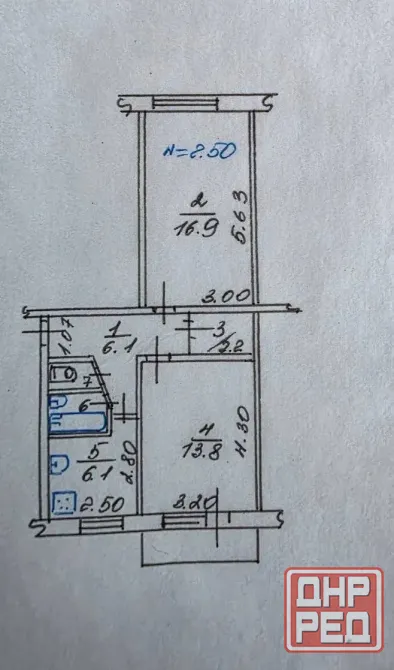 н=2.50
2
16.9
5.63
3.00
1.07
1
6.1
3
2.2
7
6
4
13.8
4.30
5
6.1
2.80
2.50
3.20
ДНР
РЕД